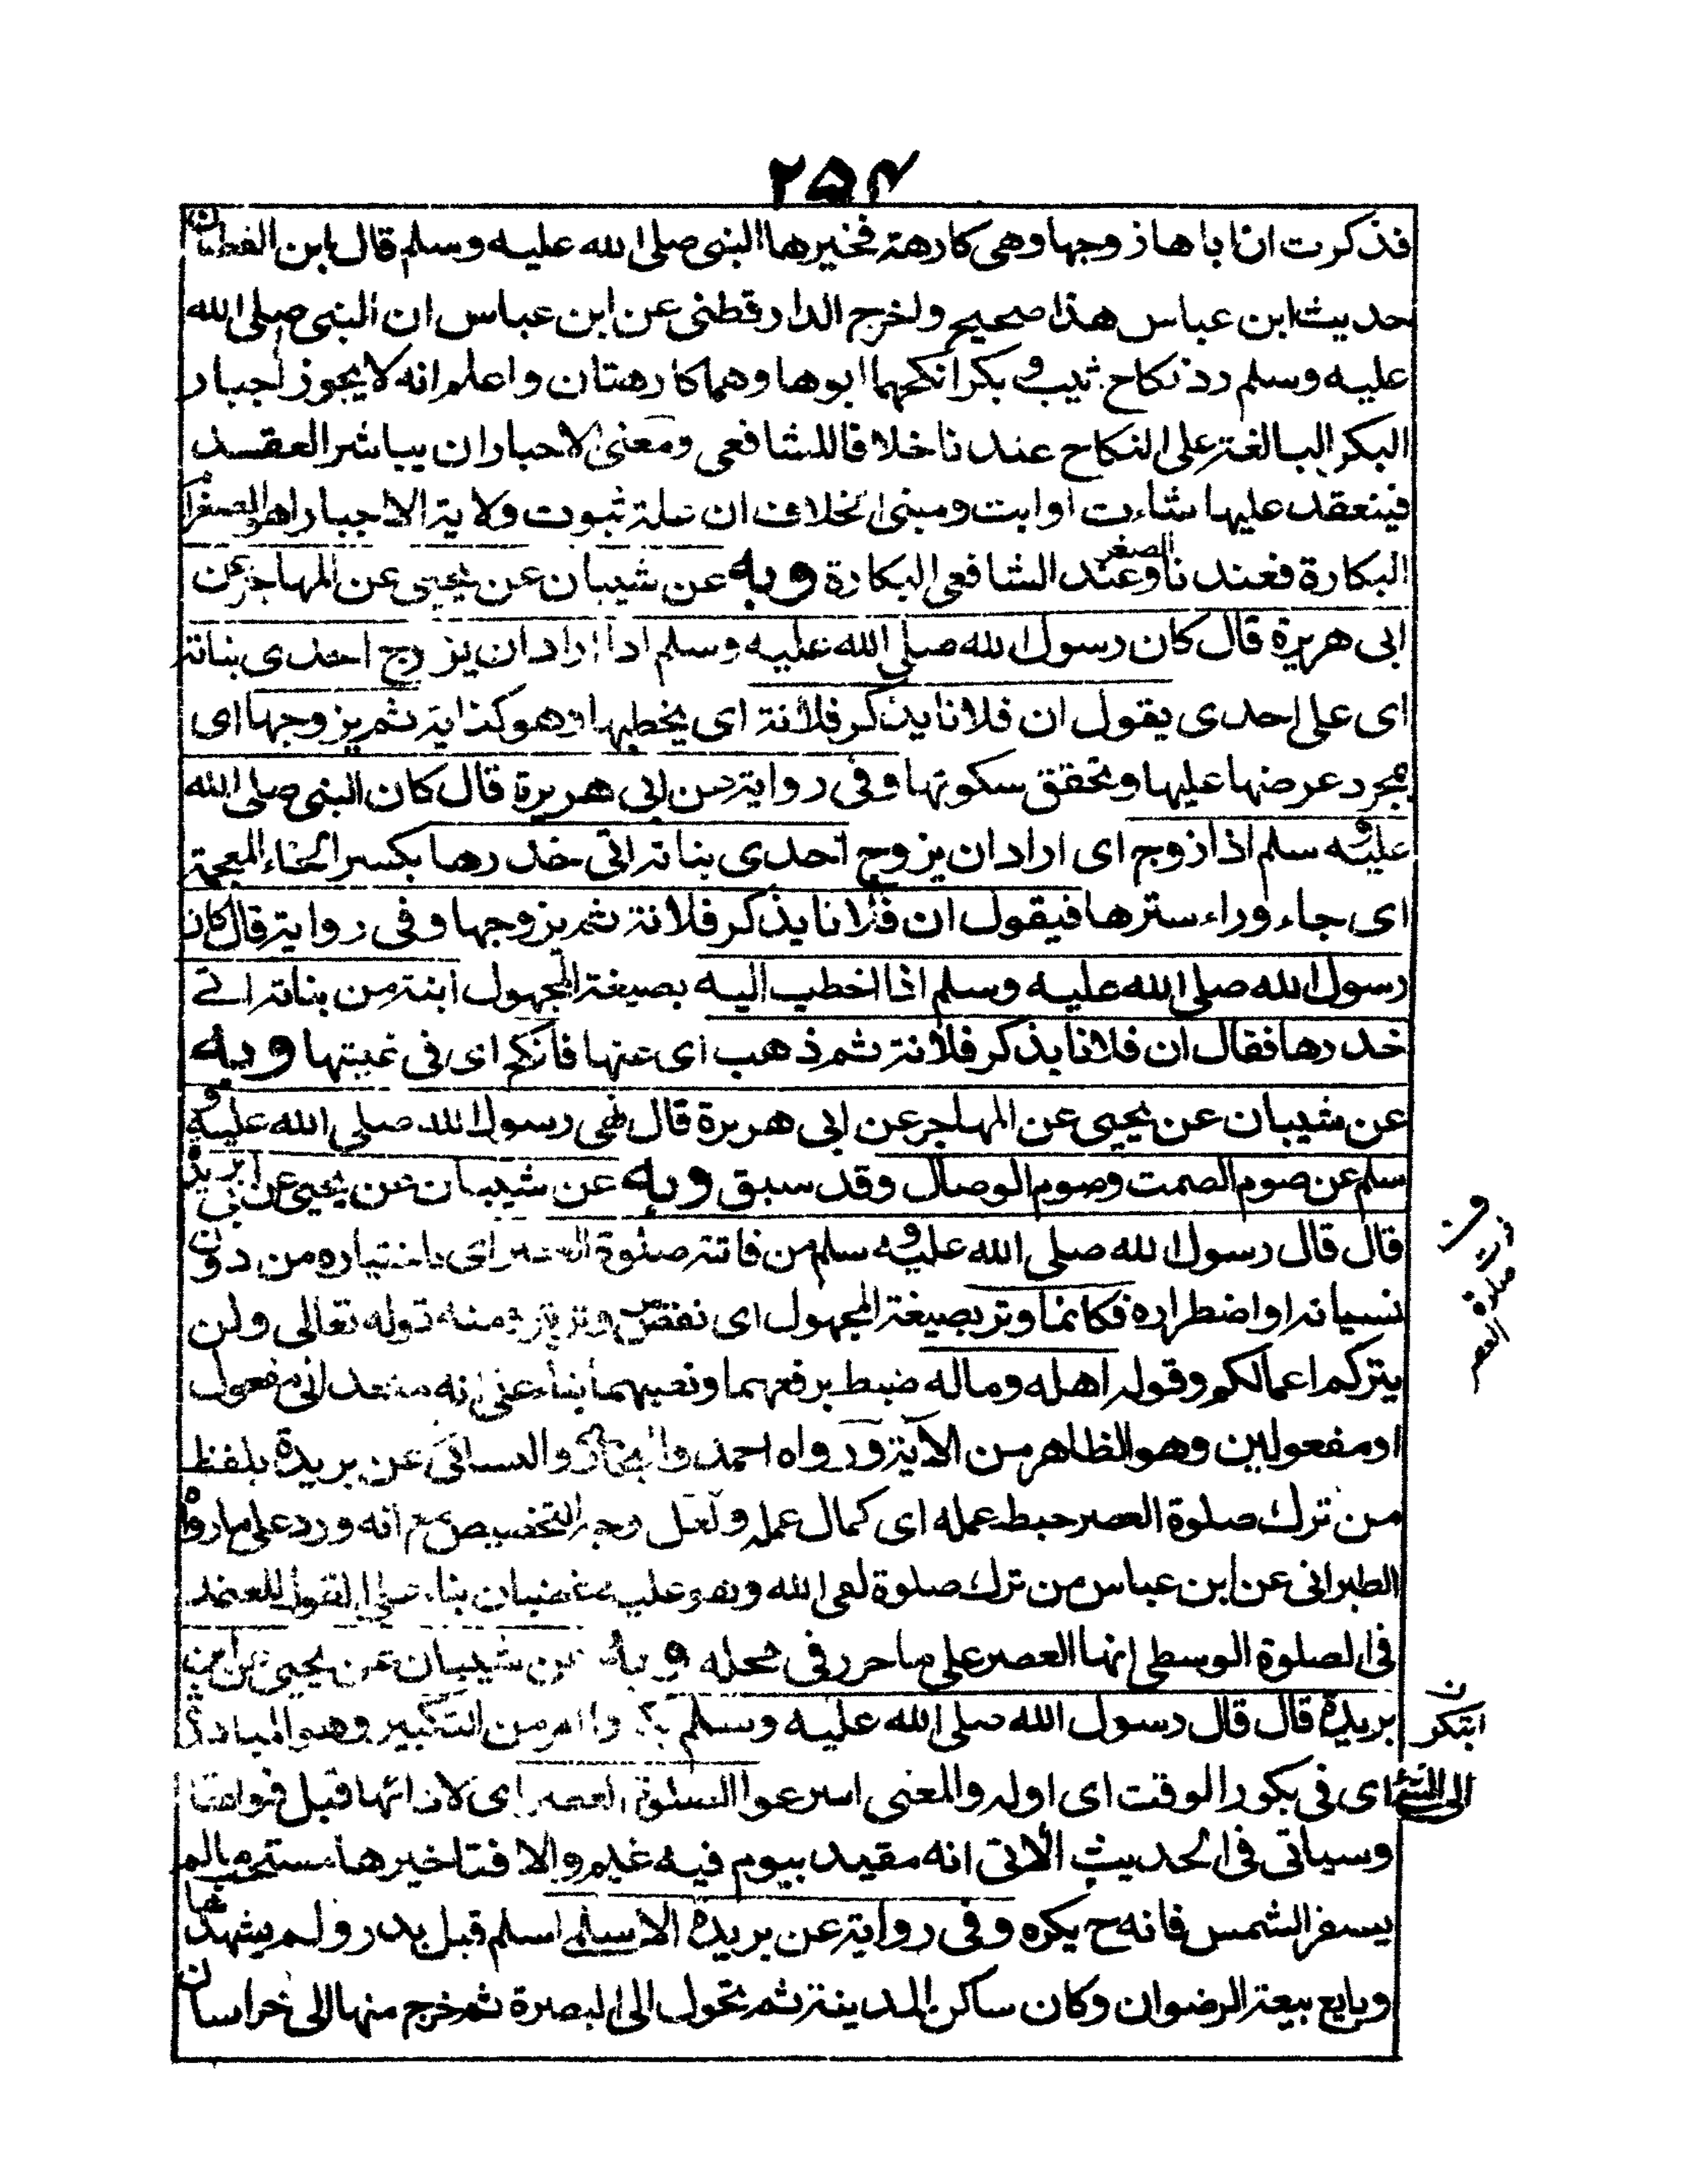 ۲۵۴
فذكرت ان اباها زوجها وهى كارهة فخيرها النبى صلى الله عليه وسلم قال ابن القطان
حديث ابن عباس هذا صحيح واخرج الدارقطنى عن ابن عباس ان النبى صلى الله
عليه وسلم رد نكاح ثيب و بكر انكحهما ابوها وهما كارهتان واعلم انه لا يجوز اجبار
البكر البالغة على النكاح عندنا خلافا للشافعى ومعنى الاجبار ان يباشر العقد
فينعقد عليها شاءت او ابت ومبنى الخلاف ان علة ثبوت ولاية الاجبار اهو الصغر او
البكارة فعندنا الصغر وعند الشافعى البكارة وبه عن شيبان عن يحيى عن المهاجر عن
ابى هريرة قال كان رسول الله صلى الله عليه وسلم اذا اراد ان يزوج احدى بناته
اى على احدى يقول ان فلانا يذكر فلانة اى يخطبها وهو كناية ثم يزوجها اى
بمجرد عرضها عليها وتحقق سكوتها وفى رواية عن ابى هريرة قال كان النبى صلى الله
عليه و سلم اذا زوج اى اراد ان يزوج احدى بناته اتى خدرها بكسر الخاء المعجمة
اى جاء وراء سترها فيقول ان فلانا يذكر فلانة ثم يزوجها وفى رواية قال كان
رسول الله صلى الله عليه وسلم اذا خطب اليه بصيغة المجهول ابنة من بناته اتى
خدرها فقال ان فلانا يذكر فلانة ثم ذهب اى عنها فانكح اى فى غيبتها وبه
عن شيبان عن يحيى عن المهاجر عن ابى هريرة قال نهى رسول الله صلى الله عليه و
سلم عن صوم الصمت وصوم الوصال وقد سبق وبه عن شيبان عن يحيى عن ابن بريدة
قال قال رسول الله صلى الله عليه و سلم من فاتته صلوة العصر اى باختياره من دون
نسيانه او اضطراره فكانما وتر بصيغة المجهول اى نقص ومنه قوله تعالى ولن
يتركم اعمالكم وقوله اهله وماله ضبط برفعهما ونصبهما بناء على انه متعد الى مفعول
او مفعولين وهو الظاهر من الآية ورواه احمد والبخارى والنسائى عن بريدة بلفظ
من ترك صلوة العصر حبط عمله اى كمال عمله ولعل وجه التخصيص مع انه ورد على ما رواه
الطبرانى عن ابن عباس من ترك صلوة لقى الله وهو عليه غضبان بناء على القول المعتمد
فى الصلوة الوسطى انها العصر على ما حرر فى محله وبه عن شيبان عن يحيى عن ابن
بريدة قال قال رسول الله صلى الله عليه وسلم بكروا امر من التبكير وهو المبادرة
الى الشئ اى فى بكور الوقت اى اوله والمعنى اسرعوا الصلوة العصر اى لادائها قبل فواتها
وسياتى فى الحديث الآتى انه مقيد بيوم فيه غيم والا فتاخيرها مستحب ما لم
يسفر الشمس فانه ح يكره وفى رواية عن بريدة الاسلمى اسلم قبل بدر ولم يشهدها
وبايع بيعة الرضوان وكان ساكن المدينة ثم تحول الى البصرة ثم خرج منها الى خراسان
صلوة
العصر
ن
ابتكر